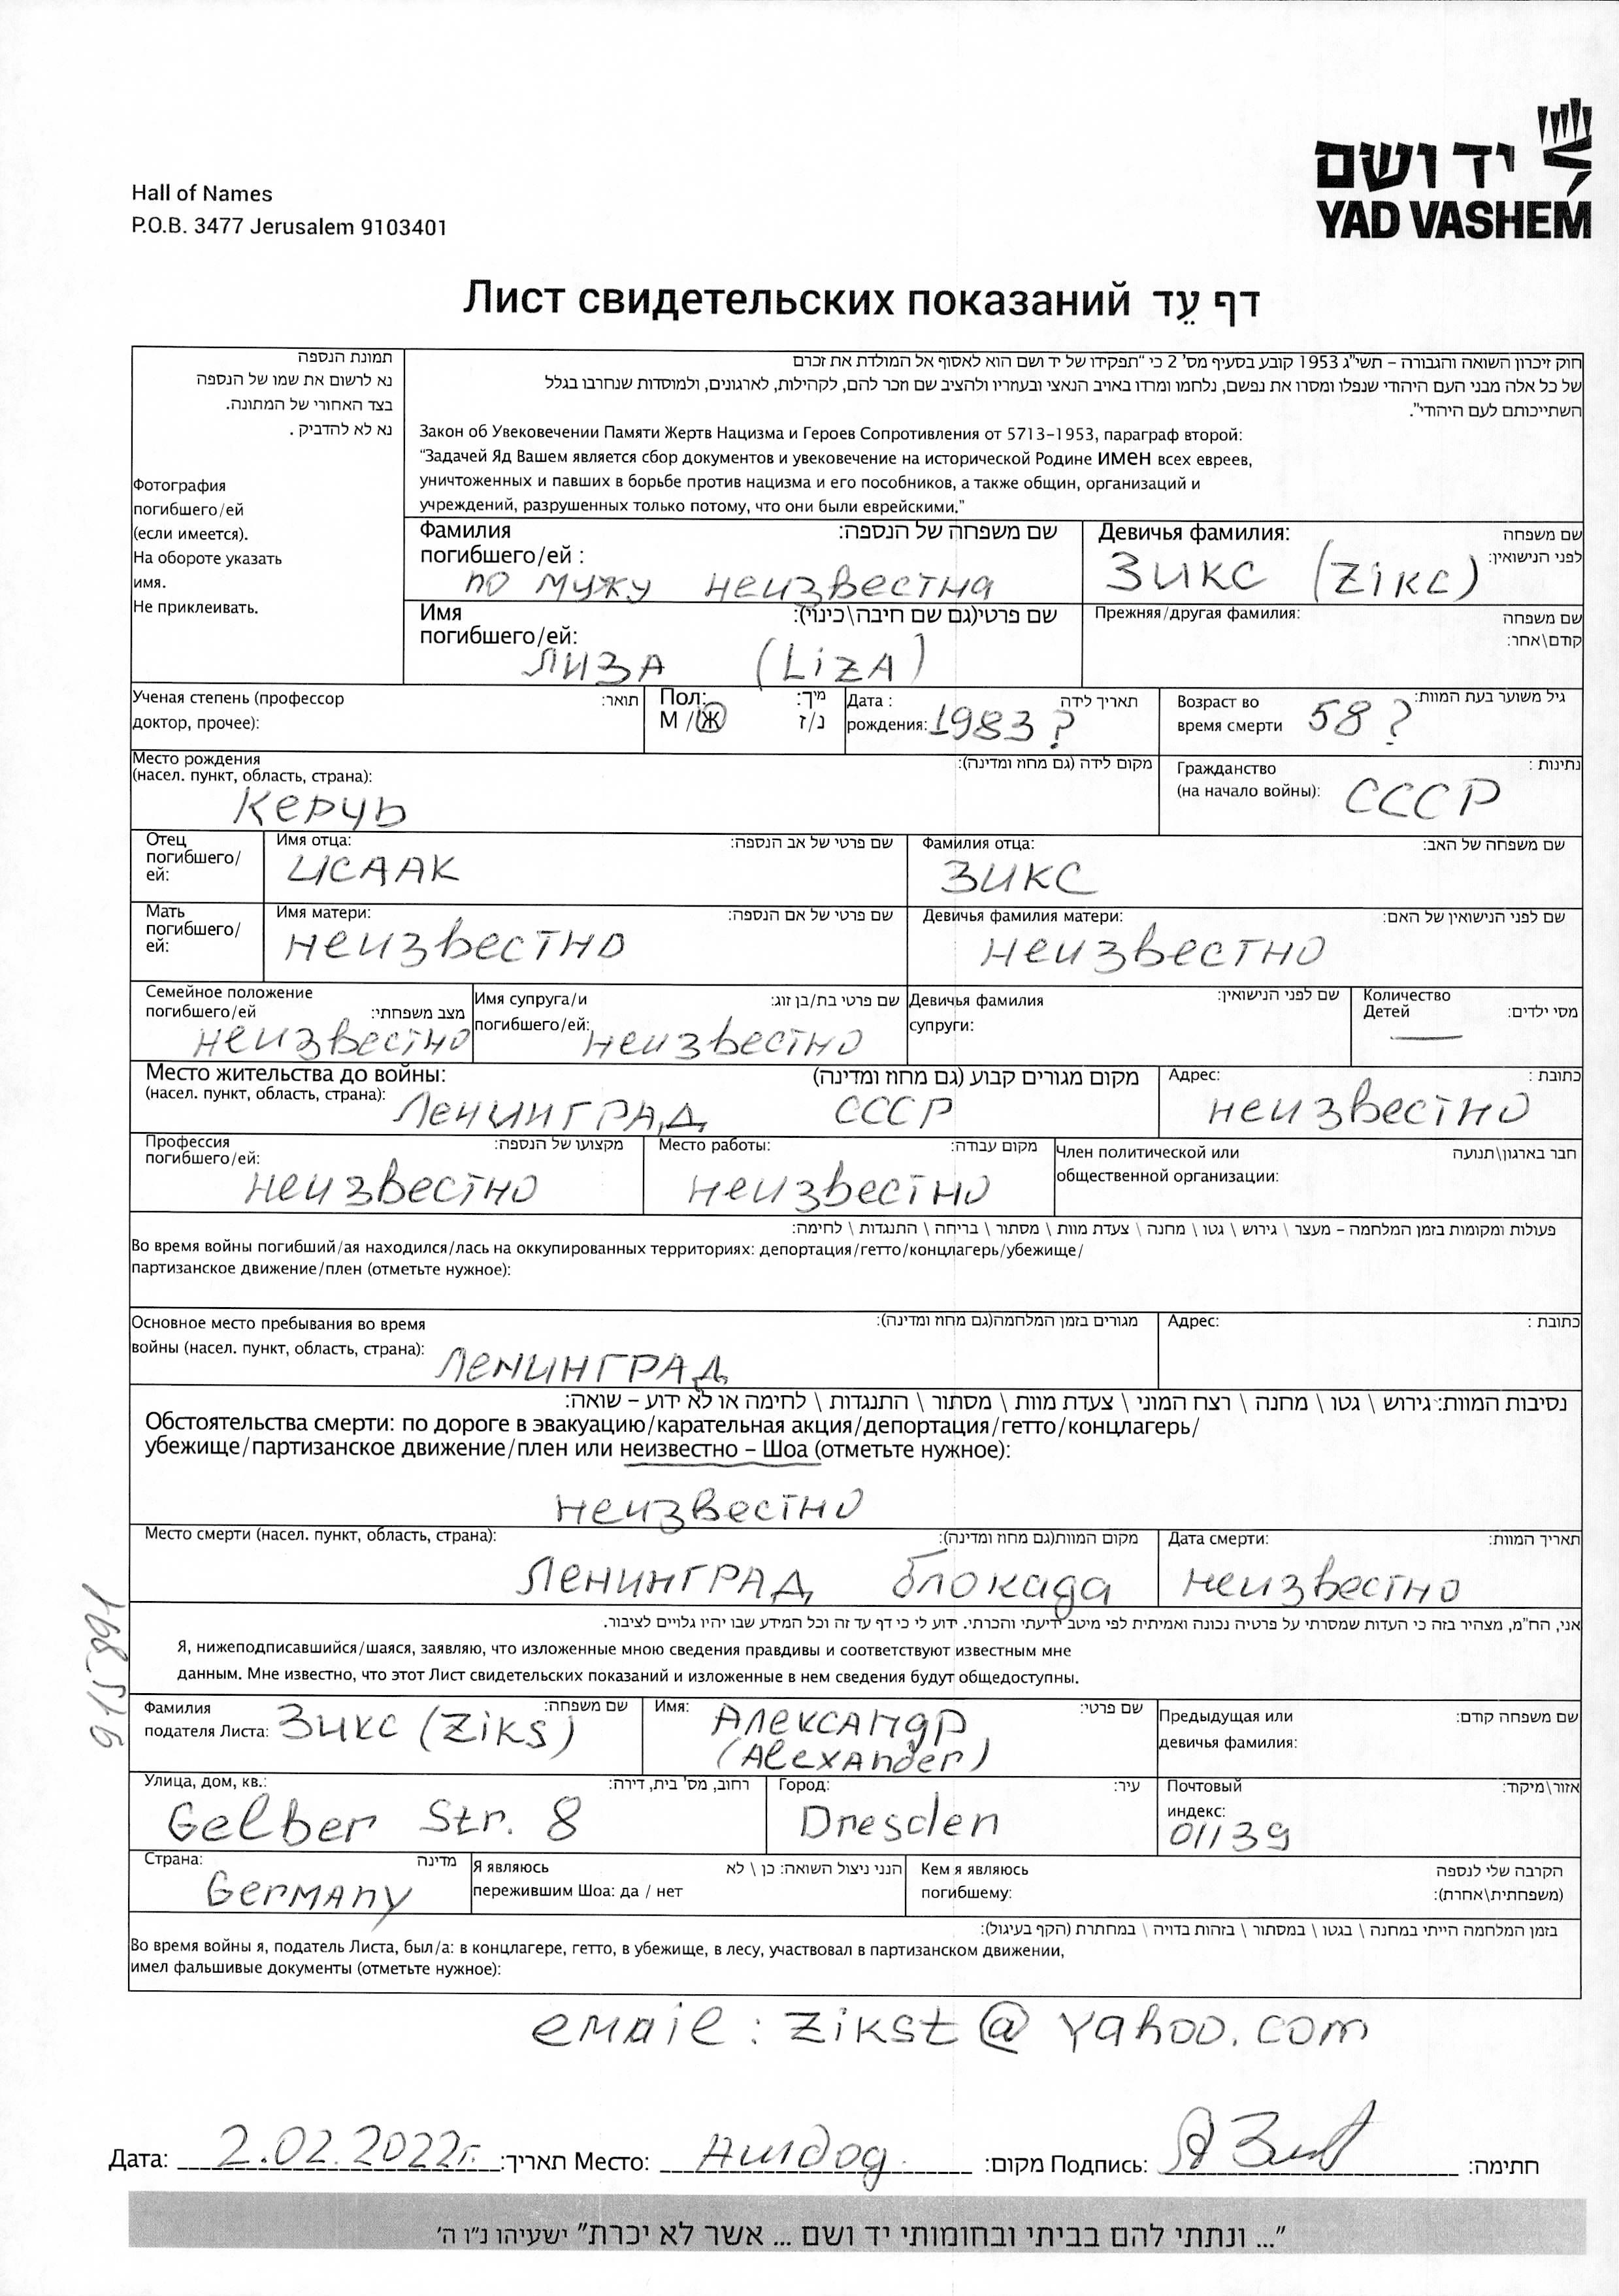 יד ושם
YAD VASHEM
Hall of Names
P.O.B. 3477 Jerusalem 9103401
Лист свидетельских показаний דף עֵד
תמונת הנספה
נא לרשום את שמו של הנספה
בצד האחורי של המתונה.
נא לא להדביק .
Фотография
погибшего/ей
(если имеется).
На обороте указать
имя.
Не приклеивать.
חוק זיכרון השואה והגבורה – תשי"ג 1953 קובע בסעיף מס' 2 כי "תפקידו של יד ושם הוא לאסוף אל המולדת את זכרם
של כל אלה מבני העם היהודי שנפלו ומסרו את נפשם, נלחמו ומרדו באויב הנאצי ובעוזריו ולהציב שם וזכר להם, לקהילות, לארגונים, ולמוסדות שנחרבו בגלל
השתייכותם לעם היהודי".
Закон об Увековечении Памяти Жертв Нацизма и Героев Сопротивления от 5713–1953, параграф второй:
"Задачей Яд Вашем является сбор документов и увековечение на исторической Родине имен всех евреев,
уничтоженных и павших в борьбе против нацизма и его пособников, а также общин, организаций и
учреждений, разрушенных только потому, что они были еврейскими."
Фамилия שם משפחה של הנספה:
погибшего/ей :
по мужу неизвестна
Девичья фамилия: שם משפחה
לפני הנישואין:
Зикс (Zikc)
Имя שם פרטי(גם שם חיבה\כינוי):
погибшего/ей:
Лиза (Liza)
Прежняя/другая фамилия: שם משפחה
קודם\אחר:
Ученая степень (профессор תואר:
доктор, прочее):
Пол: מין:
М / Ж ז/נ
Дата : תאריך לידה
рождения: 1983 ?
Возраст во גיל משוער בעת המוות:
время смерти 58 ?
Место рождения מקום לידה (גם מחוז ומדינה):
(насел. пункт, область, страна):
Керчь
Гражданство נתינות :
(на начало войны): СССР
Отец
погибшего/
ей:
Имя отца: שם פרטי של אב הנספה:
Исаак
Фамилия отца: שם משפחה של האב:
Зикс
Мать
погибшего/
ей:
Имя матери: שם פרטי של אם הנספה:
неизвестно
Девичья фамилия матери: שם לפני הנישואין של האם:
неизвестно
Семейное положение
погибшего/ей מצב משפחתי:
неизвестно
Имя супруга/и שם פרטי בת/בן זוג:
погибшего/ей: неизвестно
Девичья фамилия שם לפני הנישואין:
супруги:
Количество
Детей מסי ילדים:
—
Место жительства до войны: מקום מגורים קבוע (גם מחוז ומדינה)
(насел. пункт, область, страна): Ленинград СССР
Адрес: כתובת :
неизвестно
Профессия מקצועו של הנספה:
погибшего/ей:
неизвестно
Место работы: מקום עבודה:
неизвестно
Член политической или חבר בארגון\תנועה
общественной организации:
פעולות ומקומות בזמן המלחמה – מעצר \ גירוש \ גטו \ מחנה \ צעדת מוות \ מסתור \ בריחה \ התנגדות \ לחימה:
Во время войны погибший/ая находился/лась на оккупированных территориях: депортация/гетто/концлагерь/убежище/
партизанское движение/плен (отметьте нужное):
Основное место пребывания во время מגורים בזמן המלחמה(גם מחוז ומדינה):
войны (насел. пункт, область, страна): Ленинград
Адрес: כתובת :
נסיבות המוות: גירוש \ גטו \ מחנה \ רצח המוני \ צעדת מוות \ מסתור \ התנגדות \ לחימה או לא ידוע – שואה:
Обстоятельства смерти: по дороге в эвакуацию/карательная акция/депортация/гетто/концлагерь/
убежище/партизанское движение/плен или неизвестно – Шоа (отметьте нужное):
неизвестно
Место смерти (насел. пункт, область, страна): מקום המוות(גם מחוז ומדינה):
Ленинград блокада
Дата смерти: תאריך המוות:
неизвестно
915891
אני, הח"מ, מצהיר בזה כי העדות שמסרתי על פרטיה נכונה ואמיתית לפי מיטב ידיעתי והכרתי. ידוע לי כי דף עד זה וכל המידע שבו יהיו גלויים לציבור.
Я, нижеподписавшийся/шаяся, заявляю, что изложенные мною сведения правдивы и соответствуют известным мне
данным. Мне известно, что этот Лист свидетельских показаний и изложенные в нем сведения будут общедоступны.
Фамилия שם משפחה:
подателя Листа: Зикс (Ziks)
Имя: שם פרטי:
Александр
(Alexander)
Предыдущая или שם משפחה קודם:
девичья фамилия:
Улица, дом, кв.: רחוב, מס' בית, דירה:
Gelber Str. 8
Город: עיר:
Dresden
Почтовый אזור\מיקוד:
индекс:
01139
Страна: מדינה
Germany
Я являюсь הנני ניצול השואה: כן \ לא
пережившим Шоа: да / нет
Кем я являюсь הקרבה שלי לנספה
погибшему: (משפחתית\אחרת):
בזמן המלחמה הייתי במחנה \ בגטו \ במסתור \ בזהות בדויה \ במחתרת (הקף בעיגול):
Во время войны я, податель Листа, был/а: в концлагере, гетто, в убежище, в лесу, участвовал в партизанском движении,
имел фальшивые документы (отметьте нужное):
email: zikst@yahoo.com
Дата: 2.02.2022г. תאריך: Место: Ашдод מקום: Подпись: חתימה:
"... ונתתי להם בביתי ובחומותי יד ושם ... אשר לא יכרת" ישעיהו נ"ו ה'